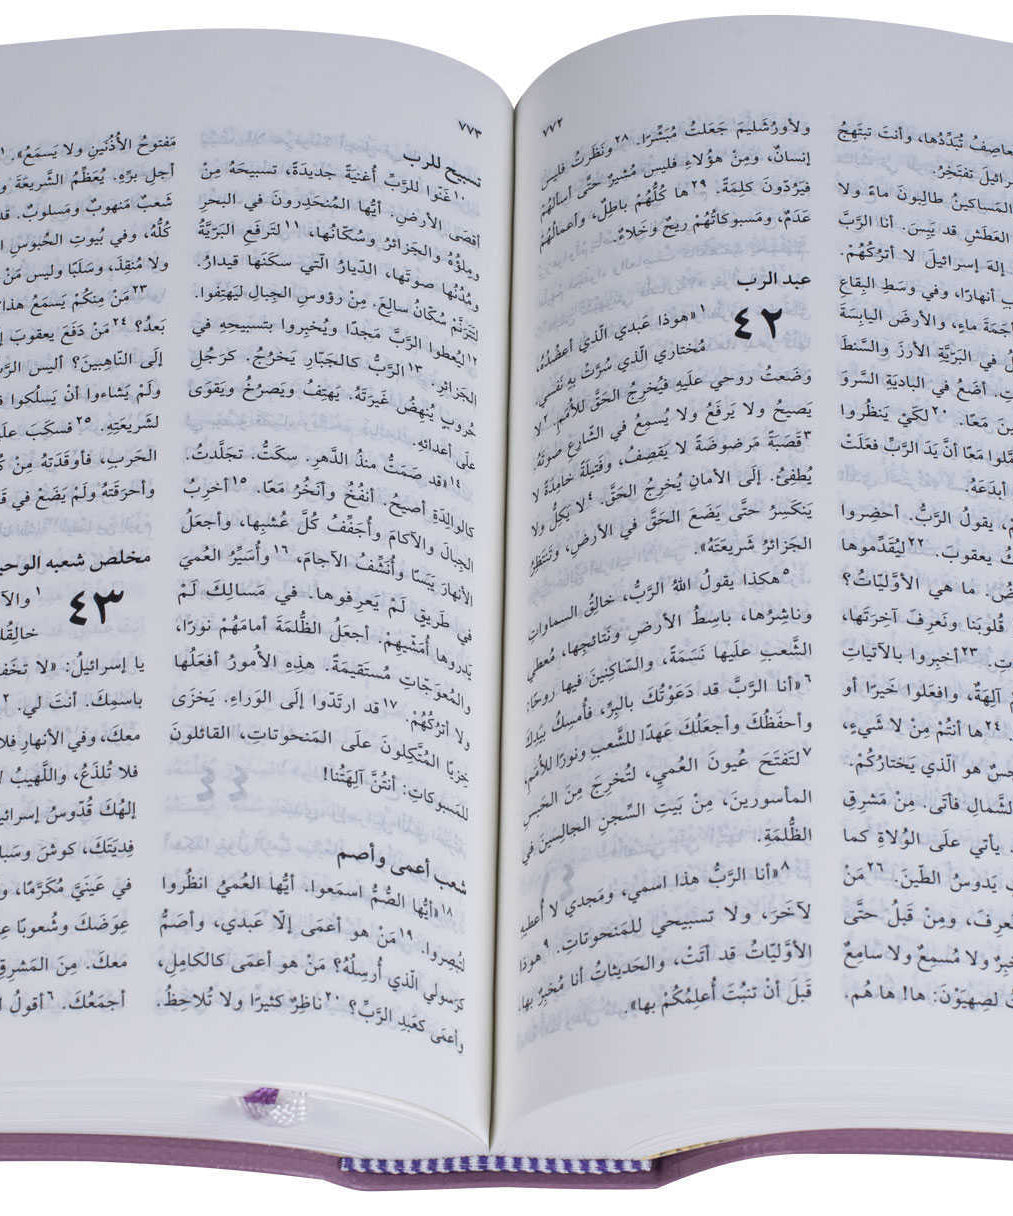 ٧٧٢
عاصِفُ تُبَدِّدُها، وأنتَ تبتَهِجُ
إسرائيلَ تفتَخِرُ.
المَساكينُ طالِبونَ ماءً ولا
العَطَشِ قد يَبِسَ. أنا الرَّبُّ
إلهَ إسرائيلَ لا أترُكُهُمْ.
أنهارًا، وفي وسَطِ البِقاعِ
أجَمَةَ ماءٍ، والأرضَ اليابِسَةَ
في البَرّيَّةِ الأرزَ والسَّنطَ
أضَعُ في الباديَةِ السَّروَ
مَعًا. ٢٠لكَيْ يَنظُروا
مَعًا أنَّ يَدَ الرَّبِّ فعَلَتْ
أبدَعَهُ.
يقولُ الرَّبُّ. أحضِروا
يعقوبَ. ٢٢ليُقَدِّموها
ما هي الأوَّليّاتُ؟
قُلوبَنا ونَعرِفَ آخِرَتَها،
٢٣أخبِروا بالآتياتِ
آلِهَةٌ، وافعَلوا خَيرًا أو
٢٤ها أنتُمْ مِنْ لا شَيءٍ،
هو الّذي يَختارُكُمْ.
الشَّمالِ فأتَى. مِنْ مَشرِقِ
يأتي علَى الوُلاةِ كما
يَدوسُ الطّينَ. ٢٦مَنْ
نَعرِفَ، ومِنْ قَبلُ حتَّى
ولا مُسمِعٌ ولا سامِعٌ
لصِهيَوْنَ: ها! ها هُم.
ولأورُشَليمَ جَعَلتُ مُبَشِّرًا. ٢٨ونَظَرتُ فليس
إنسانٌ، ومِنْ هؤُلاءِ فليس مُشيرٌ حتَّى أسألَهُمْ
فيَرُدّونَ كلِمَةً. ٢٩ها كُلُّهُمْ باطِلٌ، وأعمالُهُمْ
عَدَمٌ، ومَسبوكاتُهُمْ ريحٌ وخَلاءٌ.
عبد الرب
٤٢
١«هوذا عَبدي الّذي أعضُدُهُ،
مُختاري الّذي سُرَّتْ بهِ نَفسي.
وضَعتُ روحي علَيهِ فيُخرِجُ الحَقَّ للأُمَمِ. ٢لا
يَصيحُ ولا يَرفَعُ ولا يُسمِعُ في الشّارِعِ صوتَهُ.
٣قَصَبَةً مَرضوضَةً لا يَقصِفُ، وفَتيلَةً خامِدَةً لا
يُطفِئُ. إلَى الأمانِ يُخرِجُ الحَقَّ. ٤لا يَكِلُّ ولا
يَنكَسِرُ حتَّى يَضَعَ الحَقَّ في الأرضِ، وتَنتَظِرُ
الجَزائرُ شَريعَتَهُ».
٥هكذا يقولُ اللهُ الرَّبُّ، خالِقُ السماواتِ
وناشِرُها، باسِطُ الأرضِ ونَتائجِها، مُعطي
الشَّعبِ علَيها نَسَمَةً، والسّاكِنينَ فيها روحًا:
٦«أنا الرَّبَّ قد دَعَوْتُكَ بالبِرِّ، فأُمسِكُ بيَدِكَ
وأحفَظُكَ وأجعَلُكَ عَهدًا للشَّعبِ ونورًا للأُمَمِ،
٧لتَفتَحَ عُيونَ العُميِ، لتُخرِجَ مِنَ الحَبسِ
المأسورينَ، مِنْ بَيتِ السِّجنِ الجالِسينَ في
الظُّلمَةِ.
٨«أنا الرَّبُّ هذا اسمي، ومَجدي لا أُعطيهِ
لآخَرَ، ولا تسبيحي للمَنحوتاتِ. ٩هوذا
الأوَّليّاتُ قد أتَتْ، والحَديثاتُ أنا مُخبِرٌ بها.
قَبلَ أنْ تنبُتَ أُعلِمُكُمْ بها».
٧٧٣
تسبيح للرب
١٠غَنّوا للرَّبِّ أُغنيَةً جديدَةً، تسبيحَهُ مِنْ
أقصَى الأرضِ. أيُّها المُنحَدِرونَ في البحرِ
ومِلؤُهُ والجَزائرُ وسُكّانُها، ١١لتَرفَعِ البَرّيَّةُ
ومُدُنُها صوتَها، الدّيارُ الّتي سكَنَها قيدارُ.
لتَتَرَنَّمْ سُكّانُ سالِعَ. مِنْ رؤوسِ الجِبالِ ليَهتِفوا.
١٢ليُعطوا الرَّبَّ مَجدًا ويُخبِروا بتسبيحِهِ في
الجَزائرِ. ١٣الرَّبُّ كالجَبّارِ يَخرُجُ. كرَجُلِ
حُروبٍ يُنهِضُ غَيرَتَهُ. يَهتِفُ ويَصرُخُ ويَقوَى
علَى أعدائهِ.
١٤«قد صَمَتُّ منذُ الدَّهرِ. سكَتُّ. تجَلَّدتُ.
كالوالِدَةِ أصيحُ. أنفُخُ وأنَخُرُ مَعًا. ١٥أخرِبُ
الجِبالَ والآكامَ وأُجَفِّفُ كُلَّ عُشبِها، وأجعَلُ
الأنهارَ يَبَسًا وأُنَشِّفُ الآجامَ، ١٦وأُسَيِّرُ العُميَ
في طَريقٍ لَمْ يَعرِفوها. في مَسالِكَ لَمْ
يَدروها أُمَشّيهِمْ. أجعَلُ الظُّلمَةَ أمامَهُمْ نورًا،
والمُعوَجّاتِ مُستَقيمَةً. هذِهِ الأُمورُ أفعَلُها
ولا أترُكُهُمْ. ١٧قد ارتَدّوا إلَى الوَراءِ. يَخزَى
خِزيًا المُتَّكِلونَ علَى المَنحوتاتِ، القائلونَ
للمَسبوكاتِ: أنتُنَّ آلِهَتُنا!
شعب أعمى وأصم
١٨«أيُّها الصُّمُّ اسمَعوا. أيُّها العُميُ انظُروا
لتُبصِروا. ١٩مَنْ هو أعمَى إلّا عَبدي، وأصَمُّ
كرَسولي الّذي أُرسِلُهُ؟ مَنْ هو أعمَى كالكامِلِ،
وأعمَى كعَبدِ الرَّبِّ؟ ٢٠ناظِرٌ كثيرًا ولا تُلاحِظُ.
مَفتوحُ الأُذُنَينِ ولا يَسمَعُ».
أجلِ برِّهِ. يُعَظِّمُ الشَّريعَةَ
شَعبٌ مَنهوبٌ ومَسلوبٌ.
كُلُّهُ، وفي بُيوتِ الحُبوسِ
ولا مُنقِذَ، وسَلَبًا وليس مَنْ
٢٣مَنْ مِنكُمْ يَسمَعُ هذا
بَعدُ؟ ٢٤مَنْ دَفَعَ يعقوبَ
إلَى النّاهِبينَ؟ أليس الرَّبُّ
ولَمْ يَشاءوا أنْ يَسلُكوا
لشَريعَتِهِ. ٢٥فسَكَبَ
الحَربِ، فأوقَدَتهُ مِنْ
وأحرَقَتهُ ولَمْ يَضَعْ في
مخلص شعبه الوحيد
٤٣
١والآ
خالِقُكَ
يا إسرائيلُ: «لا تخَفْ
باسمِكَ. أنتَ لي.
معكَ، وفي الأنهارِ فلا
فلا تُلذَعُ، واللَّهيبُ
إلهُكَ قُدّوسُ إسرائيلَ
فِديَتَكَ، كوشَ وسَبا
في عَينَيَّ مُكَرَّمًا،
عِوَضَكَ وشُعوبًا
معكَ. مِنَ المَشرِقِ
أجمَعُكَ. ٦أقولُ